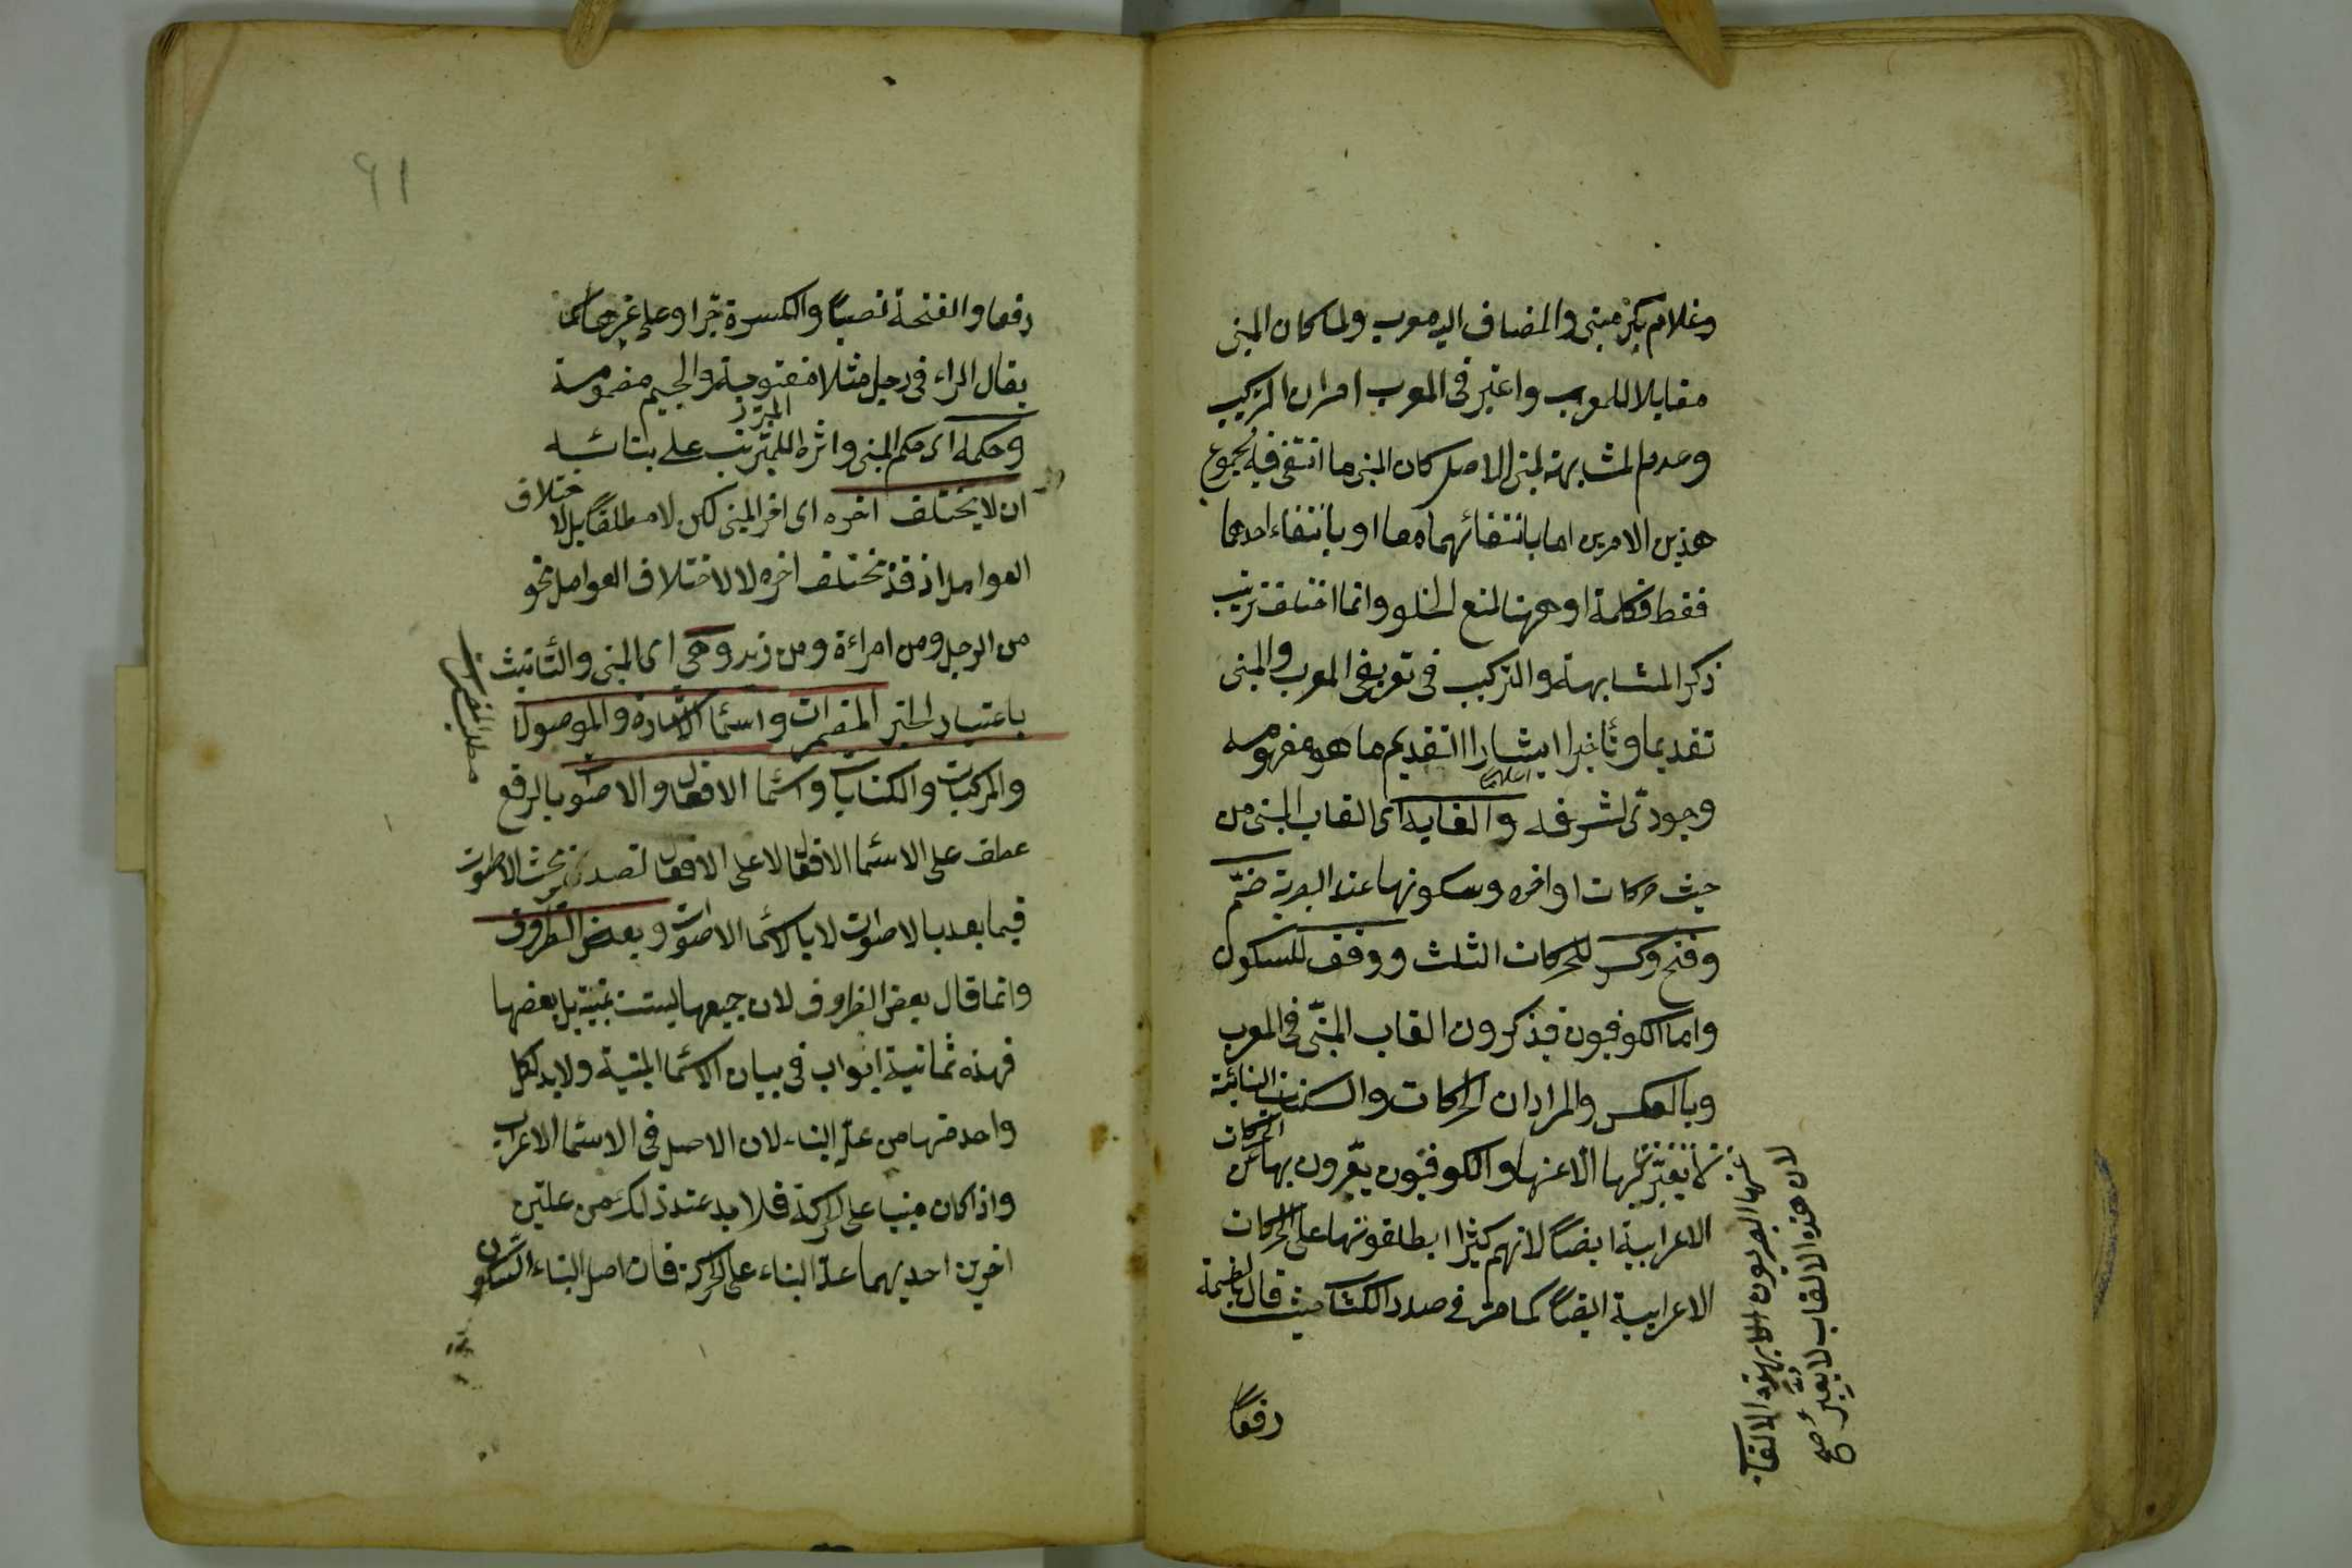 وغلام بكر مبنى والمضاف اليه معرب ولما كان المبنى
مقابلا للمعرب واعتبر فى المعرب امران التركيب
وعدم المشابهة لمبنى الاصل كان المبنى ما انتفى فيه مجموع
هذين الامرين اما بانتفائهما معا او بانتفاء احدهما
فقط فكلمة او ههنا لمنع الخلو وانما اختلف ترتيب
ذكر المشابهة والتركيب فى تعريفى المعرب والمبنى
تقديما وتأخيرا ايثارا لتقديم ما هو مفهومه
وجودى لشرفه والقابه اى القاب المبنى من
حيث حركات اواخره وسكونها عند البصرية ضمّ
وفتح وكسر للحركات الثلث ووقف للسكون
واما الكوفيون فيذكرون القاب المبنىّ فى المعرب
وبالعكس والمراد ان الحركات والسكنات البنائية
لا يعبّر بها الا عنها والكوفيون يعبّرون بها عن الحركات
الاعرابية ايضاً لانهم كثيرا يطلقونها على الحركات
الاعرابية ايضاً كما مرّ فى صدر الكتاب حيث قال بالضمة
رفعاً
لان هذه الالقاب لا يعبر صح
عنها البصريون الا بهذه الالقاب
٦١
رفعا والفتحة نصباً والكسرة جرّا وعلى غيرها كما
يقال الراء فى رجل مثلا مفتوحة والجيم مضمومة
وحكمه اى حكم المبنى واثره المترتب على بنائه
ان لا يختلف اخره اى اخر المبنى لكن لا مطلقاً بل لاختلاف
العوامل اذ قد يختلف اخره لا لاختلاف العوامل نحو
من الرجل ومن امراءة ومن زيد وهى اى المبنى والتأنيث
باعتبار الخبر المضمرات واسماء الاشارة والموصولات
والمركبات والكنايات واسماء الافعال والاصوات بالرفع
عطف على الاسماء الافعال لا على الافعال لتصديره بحث الاصوات
فيما بعد بالاصوات لا باسماء الاصوات وبعض الظروف
وانما قال بعض الظروف لان جميعها ليست بمبنية بل بعضها
فهذه ثمانية ابواب فى بيان الاسماء المبنية ولابد لكل
واحد منها من علة البناء لان الاصل فى الاسماء الاعراب
واذا كان مبنيا على الحركة فلا بد عند ذلك من علتين
اخرين احديهما علة البناء على الحركة فان اصل البناء السكون